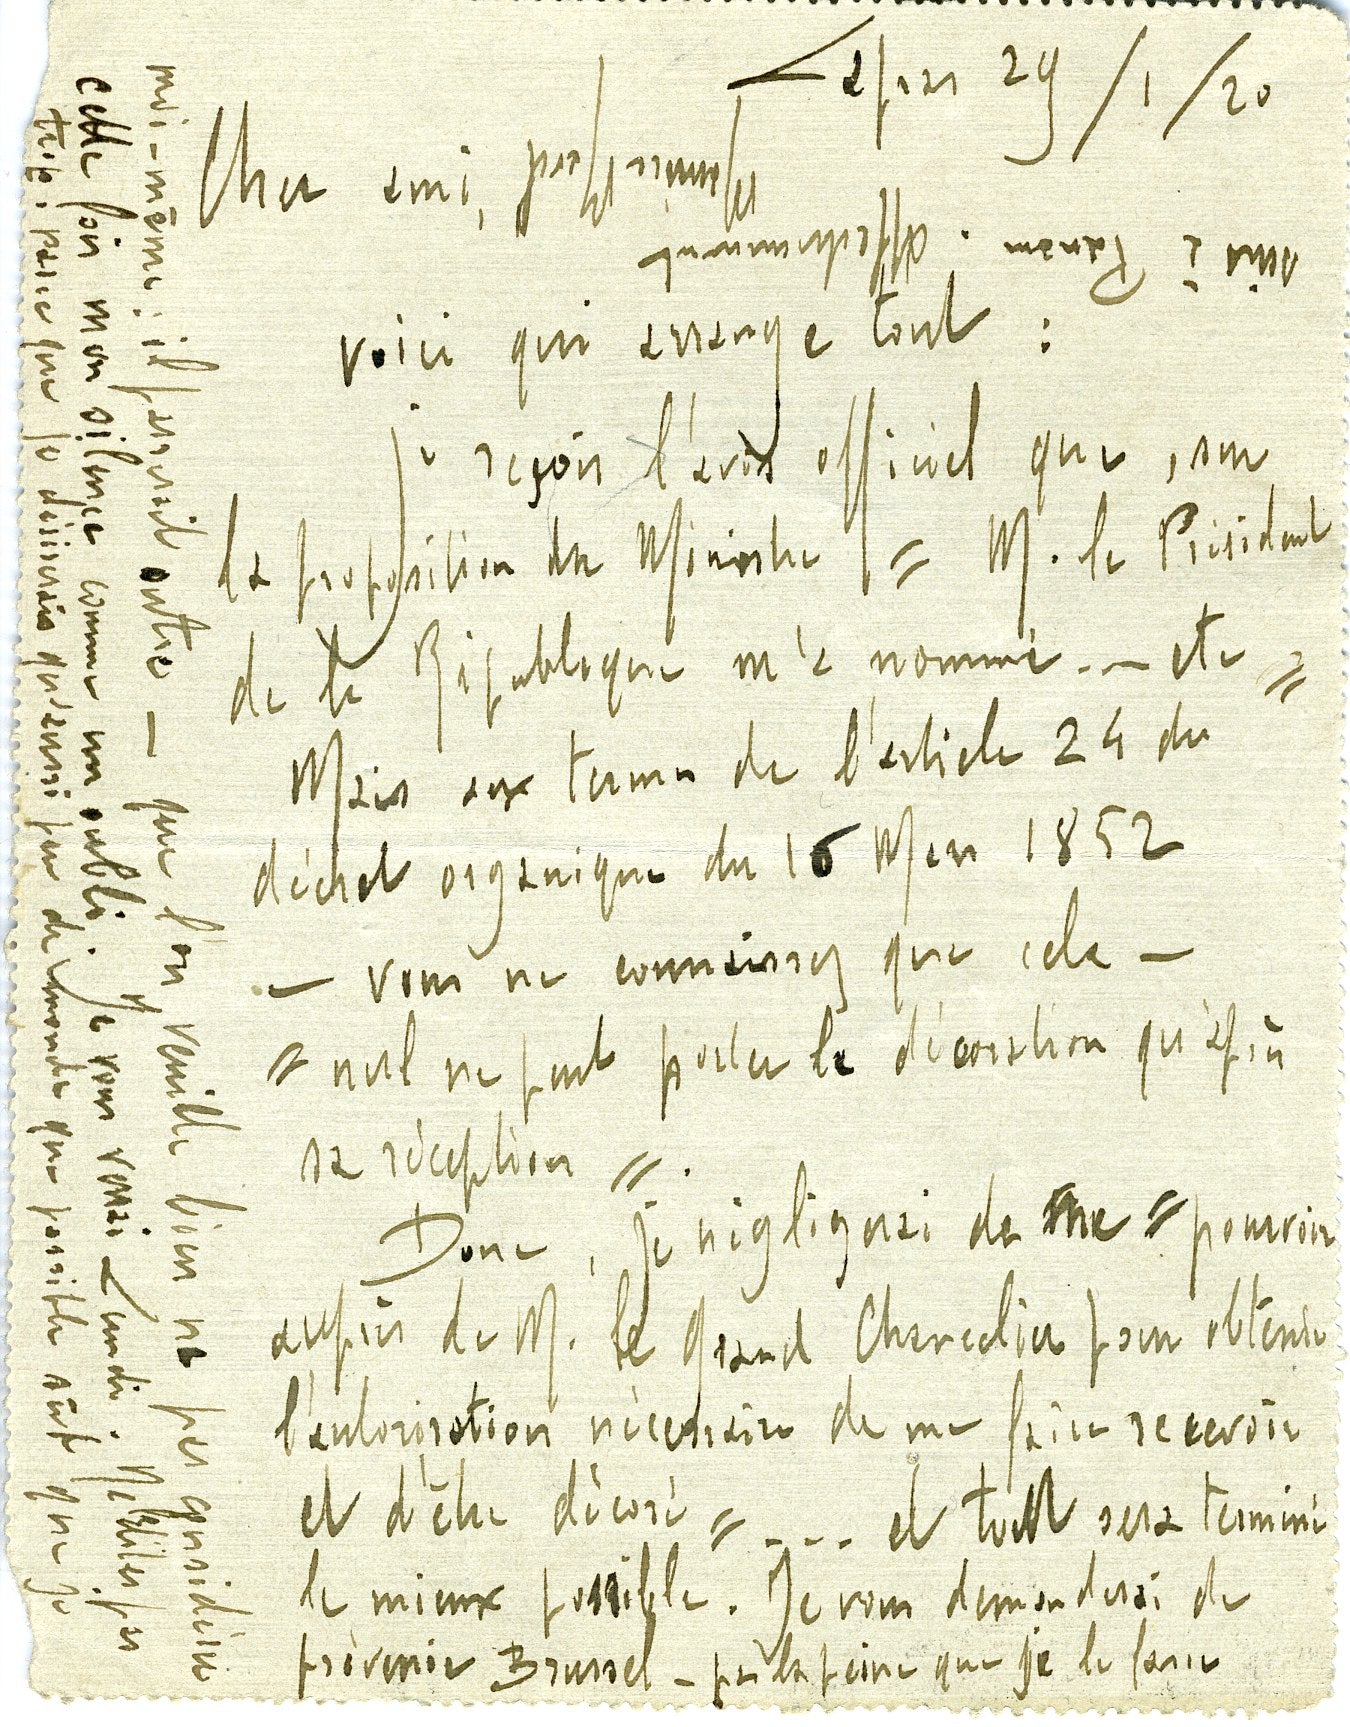 Lapras 29/1/20
Cher ami,
voici qui arrange tout :
je reçois l'avis officiel que, sur
la proposition du Ministre " M. le Président
de la République m'a nommé... etc "
Mais aux termes de l'article 24 du
décret organique du 16 Mars 1852
— vous ne connaissez que cela —
" nul ne peut porter la décoration qu'après
sa réception ".
Donc, je négligerai de me " pourvoir
auprès de M. le Grand Chancelier pour obtenir
l'autorisation nécessaire de me faire recevoir
et d'être décoré " .... et tout sera terminé
le mieux possible. Je vous demanderai de
prévenir Brussel — pas la peine que je le fasse
moi-même : il serait outré — que l'on veuille bien ne pas considérer
cette fois mon silence comme un oubli. Je vous verrai Lundi. N'êtes pas
trop : parce que je désirerais qu'aussi peu de monde que possible sût que je
suis à Paname. Affectueusement
Maurice Ravel